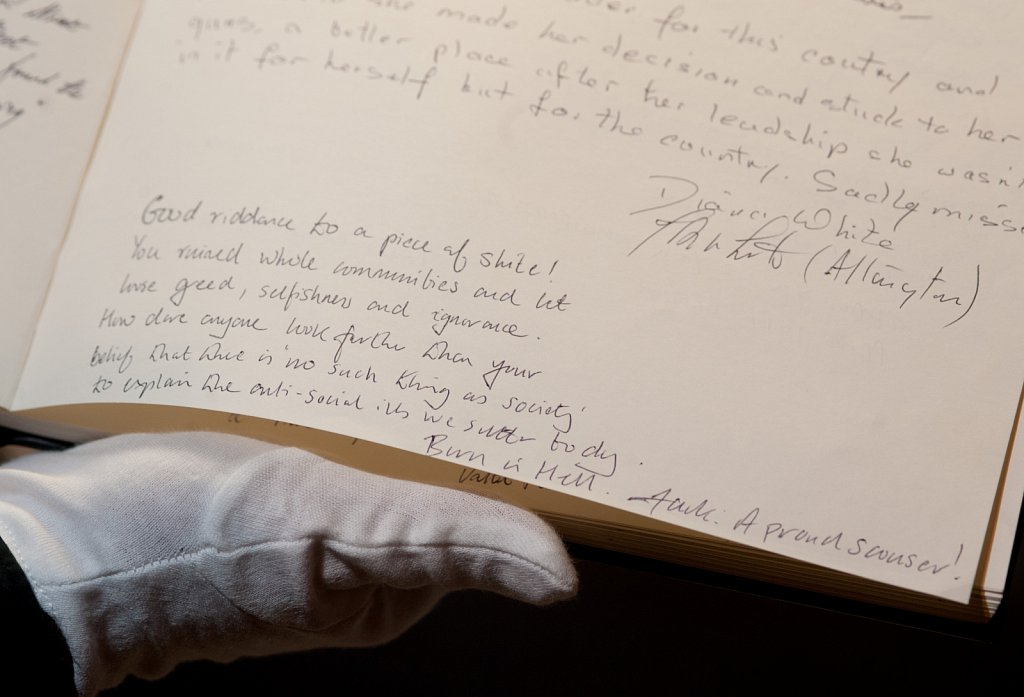 for this country and
made her decision and stuck to her
a better place after her leadship she wasn't
in it for herself but for the country. Sadly miss
Diana White
(Allington)
Good riddance to a piece of shite!
You ruined whole communities and let
lose greed, selfishness and ignorance.
How dare anyone look further than your
belief that there is 'no such thing as society'
to explain the anti-social ills we suffer today.
Burn in Hell.
A proud scouser!